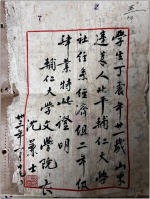 學生丁震年廿一歲山東
蓬萊人北平輔仁大學
社經系經濟組二年級
肄業特此證明
輔仁大學文學院長
沈兼士
廿三年一月